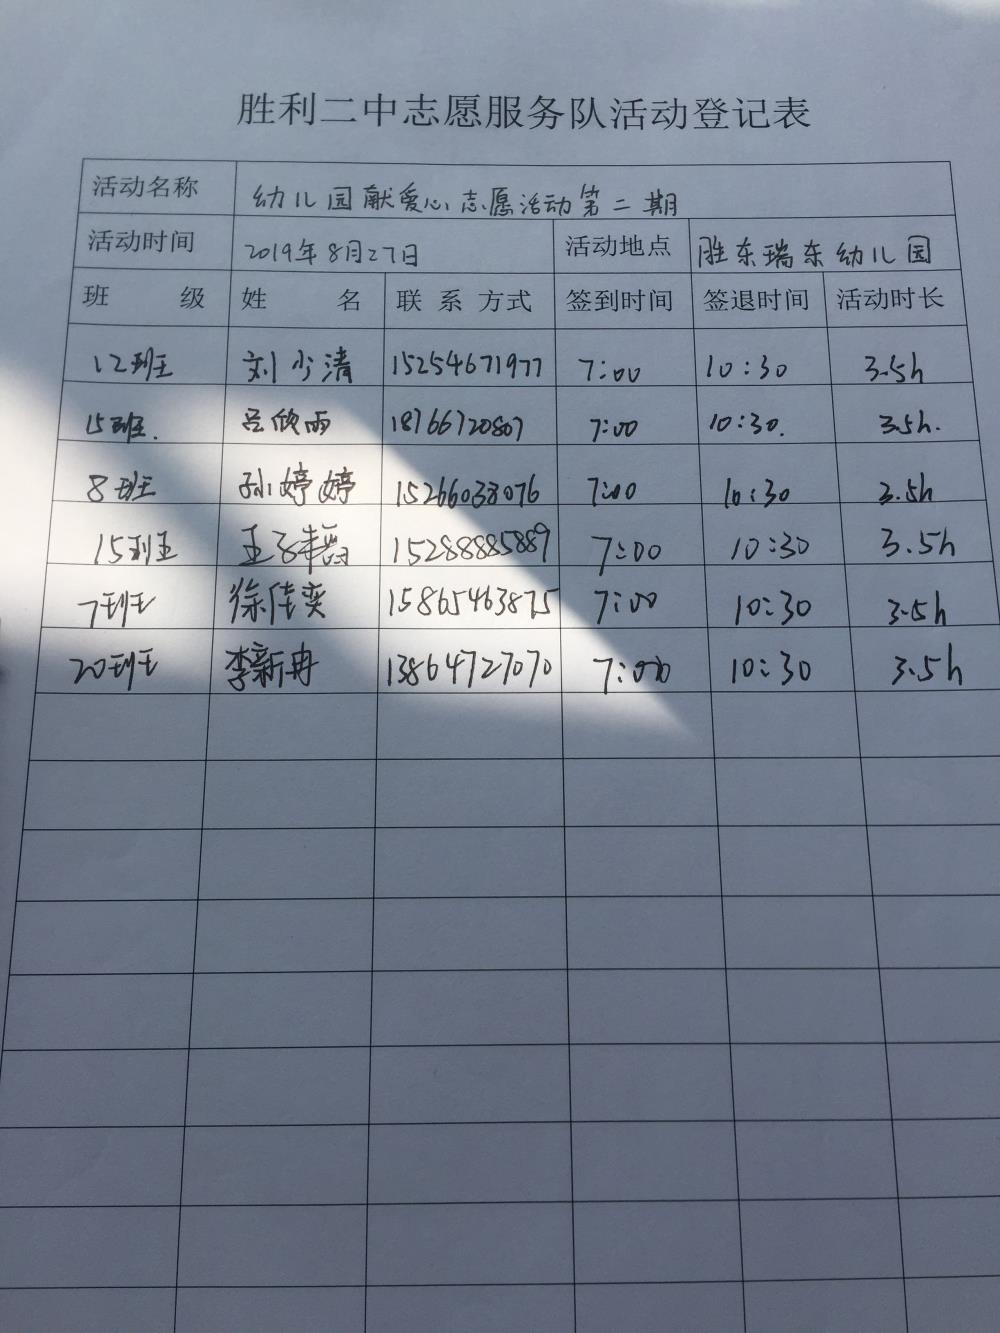 胜利二中志愿服务队活动登记表
活动名称 幼儿园献爱心志愿活动第二期
活动时间 2019年8月27日 活动地点 胜东瑞东幼儿园
班 级 姓 名 联 系 方式 签到时间 签退时间 活动时长
12班 刘少清 15254671977 7:00 10:30 3.5h
15班. 吕欣雨 18766720807 7:00 10:30. 3.5h.
8班 孙婷婷 15266038076 7:00 10:30 3.5h
15班 王子 15288885889 7:00 10:30 3.5h
7班 徐佳奕 15865463875 7:00 10:30 3.5h
20班 李新冉 13864727070 7:00 10:30 3.5h